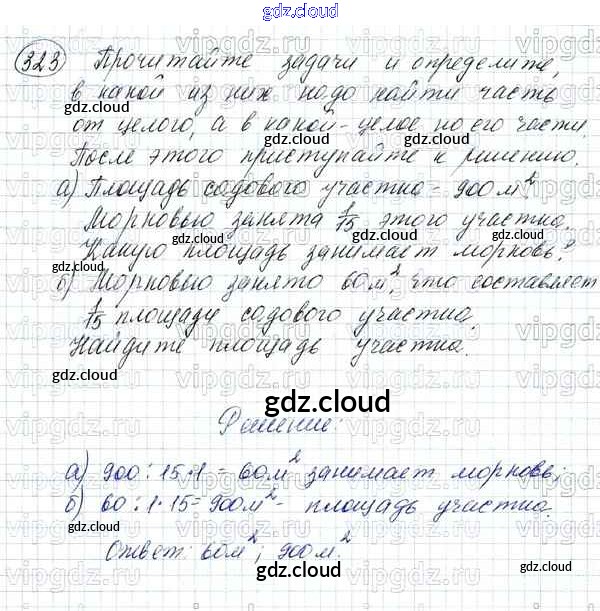 gdz.cloud
323 Прочитайте задачи и определите,
в какой из них надо найти часть
от целого, а в какой - целое по его части.
После этого приступайте к решению.
а) Площадь садового участка - 900 м².
Морковью занята 1/15 этого участка.
Какую площадь занимает морковь?
б) Морковью занято 60 м², что составляет
1/15 площади садового участка.
Найдите площадь участка.
gdz.cloud
Решение:
а) 900 : 15 · 1 = 60 м² занимает морковь;
б) 60 : 1 · 15 = 900 м² - площадь участка.
Ответ: 60 м²; 900 м².
gdz.cloud